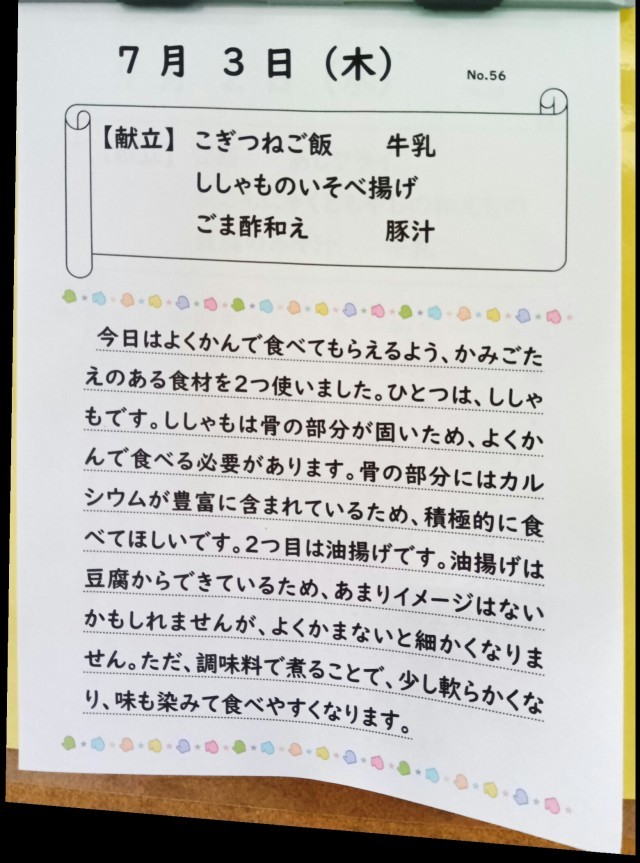 7月 3日（木）
No.56
【献立】 こぎつねご飯 牛乳
ししゃものいそべ揚げ
ごま酢和え 豚汁
今日はよくかんで食べてもらえるよう、かみごた
えのある食材を2つ使いました。ひとつは、ししゃ
もです。ししゃもは骨の部分が固いため、よくか
んで食べる必要があります。骨の部分にはカル
シウムが豊富に含まれているため、積極的に食
べてほしいです。2つ目は油揚げです。油揚げは
豆腐からできているため、あまりイメージはない
かもしれませんが、よくかまないと細かくなりま
せん。ただ、調味料で煮ることで、少し軟らかくな
り、味も染みて食べやすくなります。